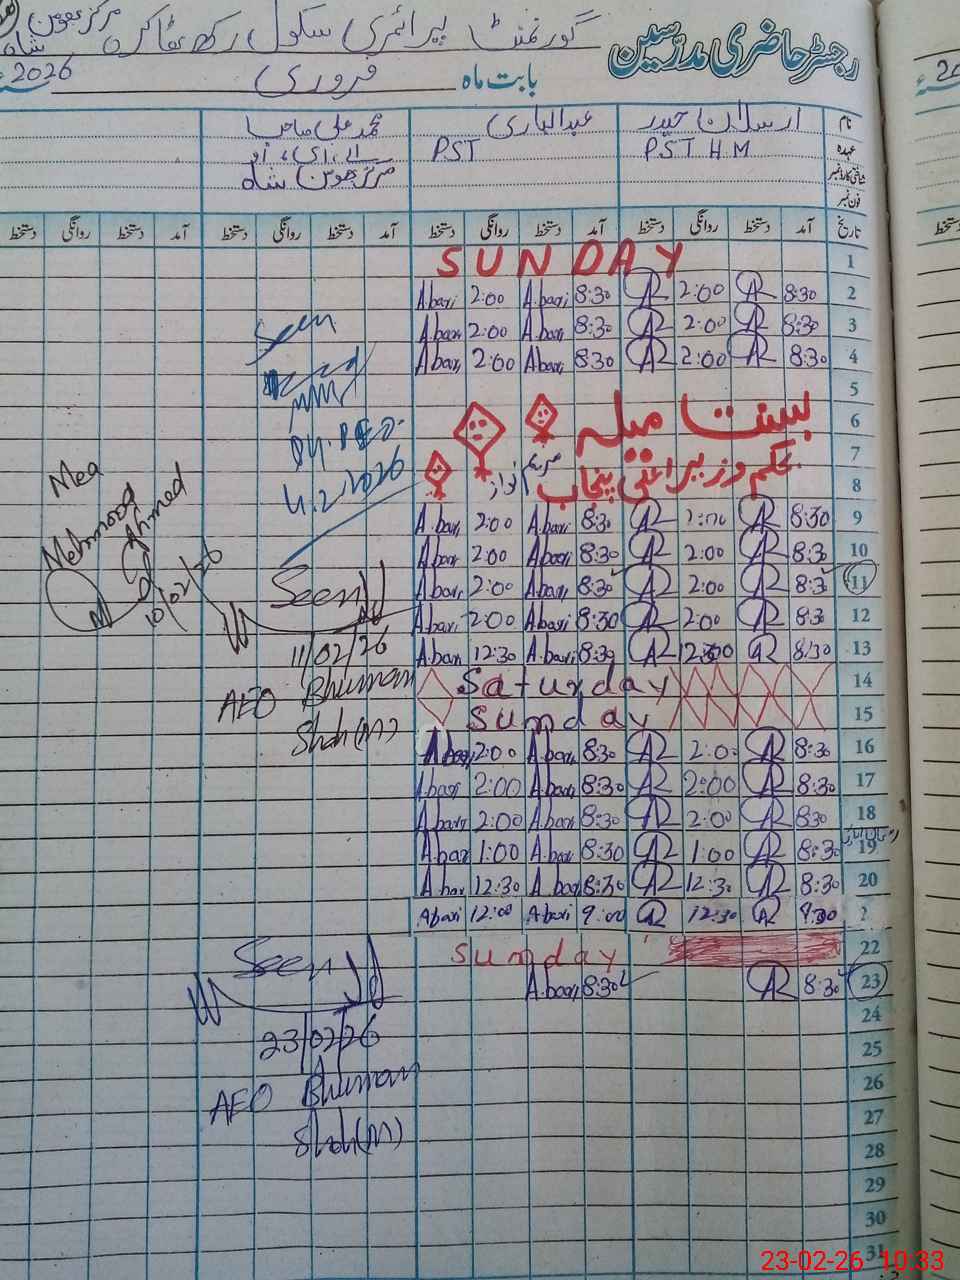 مرکز بھومن شاہ
رجسٹر حاضری مدرسین گورنمنٹ پرائمری سکول رکھ بھاکرہ
بابت ماہ فروری 2026
نام ارسلان حیدر عبدالباری محمد علی صاحب
عہدہ PST HM PST اے، ای، او
شناختی کارڈ نمبر مرکز بھومن شاہ
فون نمبر
تاریخ آمد دستخط روانگی دستخط آمد دستخط روانگی دستخط آمد دستخط روانگی دستخط آمد دستخط روانگی دستخط
1 SUNDAY
2 8:30 2:00 8:30 A.bari 2:00 A.bari
3 8:30 2:00 8:30 A.bari 2:00 A.bari
4 8:30 2:00 8:30 A.bari 2:00 A.bari
5
6 بسنت میلہ
7 بحکم وزیر اعلیٰ پنجاب مریم نواز
8
9 8:30 2:00 8:30 A.bari 2:00 A.bari
10 8:30 2:00 8:30 A.bari 2:00 A.bari
11 8:30 2:00 8:30 A.bari 2:00 A.bari
12 8:30 2:00 8:30 A.bari 2:00 A.bari
13 8:30 12:30 8:30 A.bari 12:30 A.bari
14 Saturday
15 Sunday
16 8:30 2:00 8:30 A.bari 2:00 A.bari
17 8:30 2:00 8:30 A.bari 2:00 A.bari
18 8:30 2:00 8:30 A.bari 2:00 A.bari
19 8:30 1:00 8:30 A.bari 1:00 A.bari
20 8:30 12:30 8:30 A.bari 12:30 A.bari
2 9:00 12:30 9:00 Abari 12:00 Abari
22 Sunday
23 8:30 8:30 A.bari
24
25
26
27
28
29
30
31
Seen
Dy. DEO
4.2.2026
Mea
Mehmood Ahmed
10/02/26
Seen
11/02/26
AEO Bhuman
Shah (M)
Seen
23/02/26
AEO Bhuman
Shah (M)
23-02-26 10:33